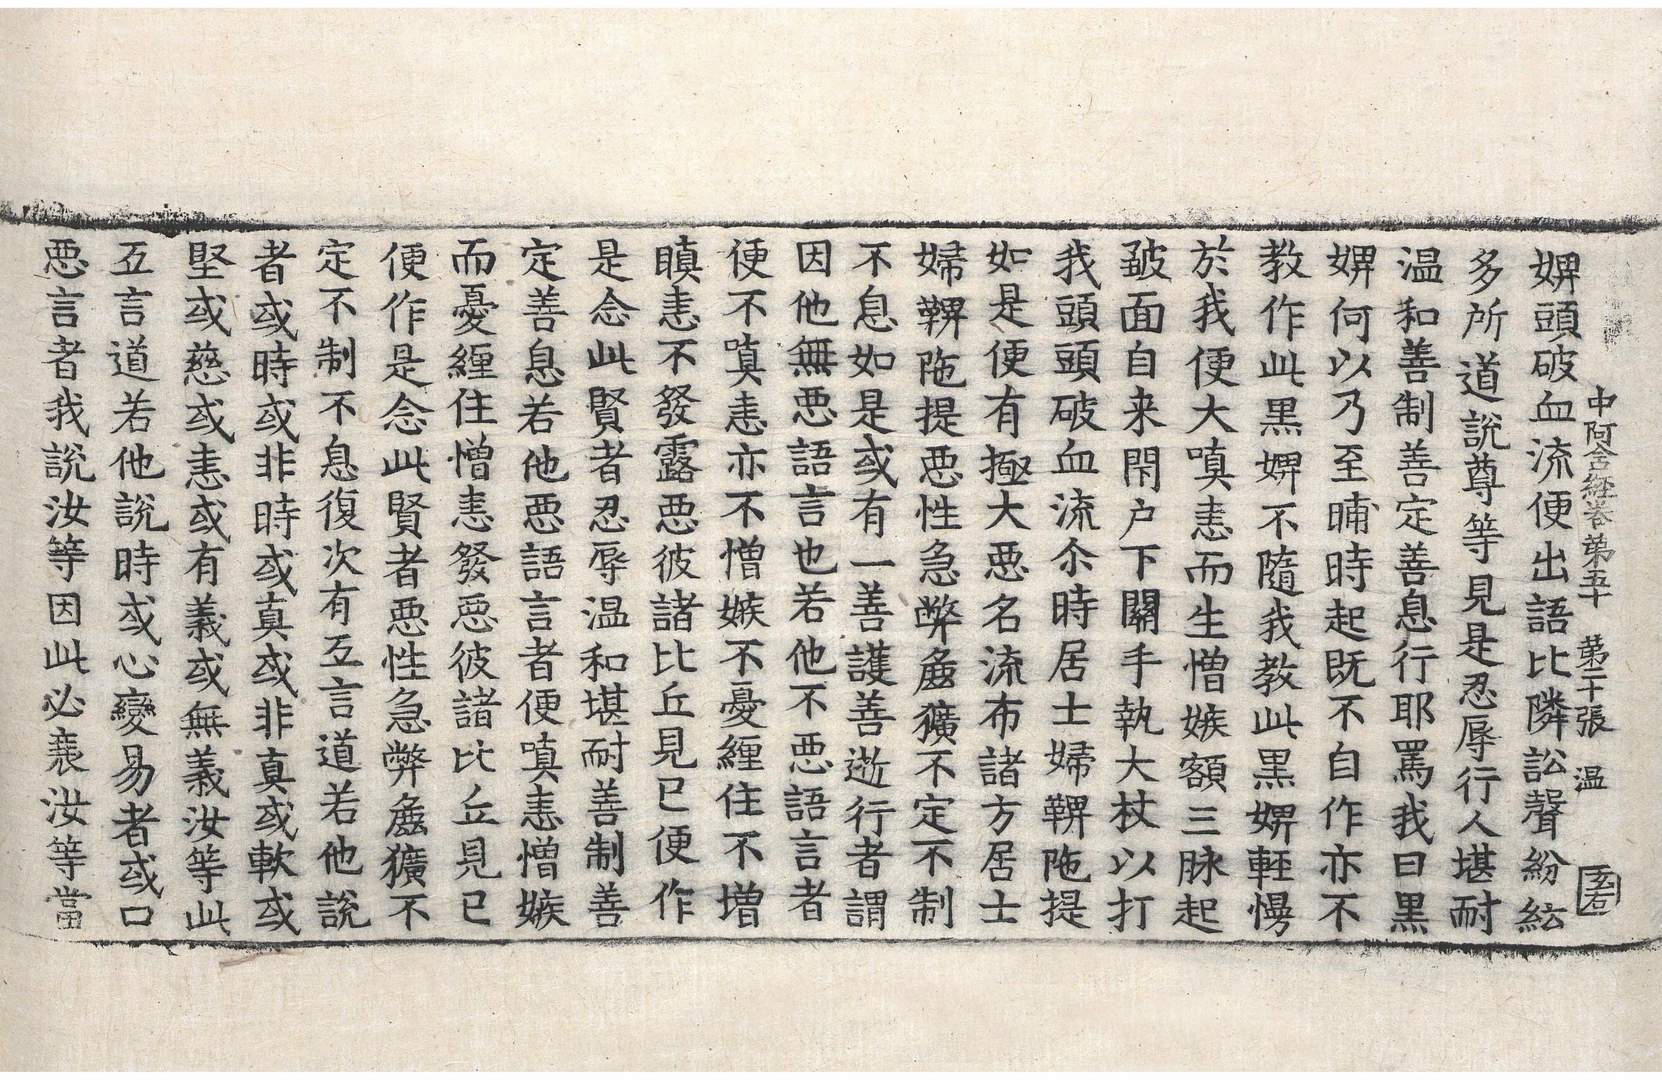 中阿含経卷第五十 第二十張 温
婢頭破血流便出語比隣訟聲紛紜
多所道說尊等見是忍辱行人堪耐
温和善制善定善息行耶罵我曰黒
婢何以乃至晡時起既不自作亦不
教作此黒婢不隨我教此黒婢輕慢
於我便大嗔恚而生憎嫉額三脉起
皺面自来閇户下關手執大杖以打
我頭頭破血流尒時居士婦鞞陁提
如是便有極大悪名流布諸方居士
婦鞞陁提悪性急弊麁獷不定不制
不息如是或有一善護善逝行者謂
因他無悪語言也若他不悪語言者
便不嗔恚亦不憎嫉不憂纒住不増
瞋恚不發露悪彼諸比丘見已便作
是念此賢者忍辱温和堪耐善制善
定善息若他悪語言者便嗔恚憎嫉
而憂纒住憎恚發悪彼諸比丘見已
便作是念此賢者悪性急弊麁獷不
定不制不息復次有五言道若他說
者或時或非時或真或非真或軟或
堅或慈或恚或有義或無義汝等此
五言道若他說時或心變易者或口
悪言者我說汝等因此必衰汝等當